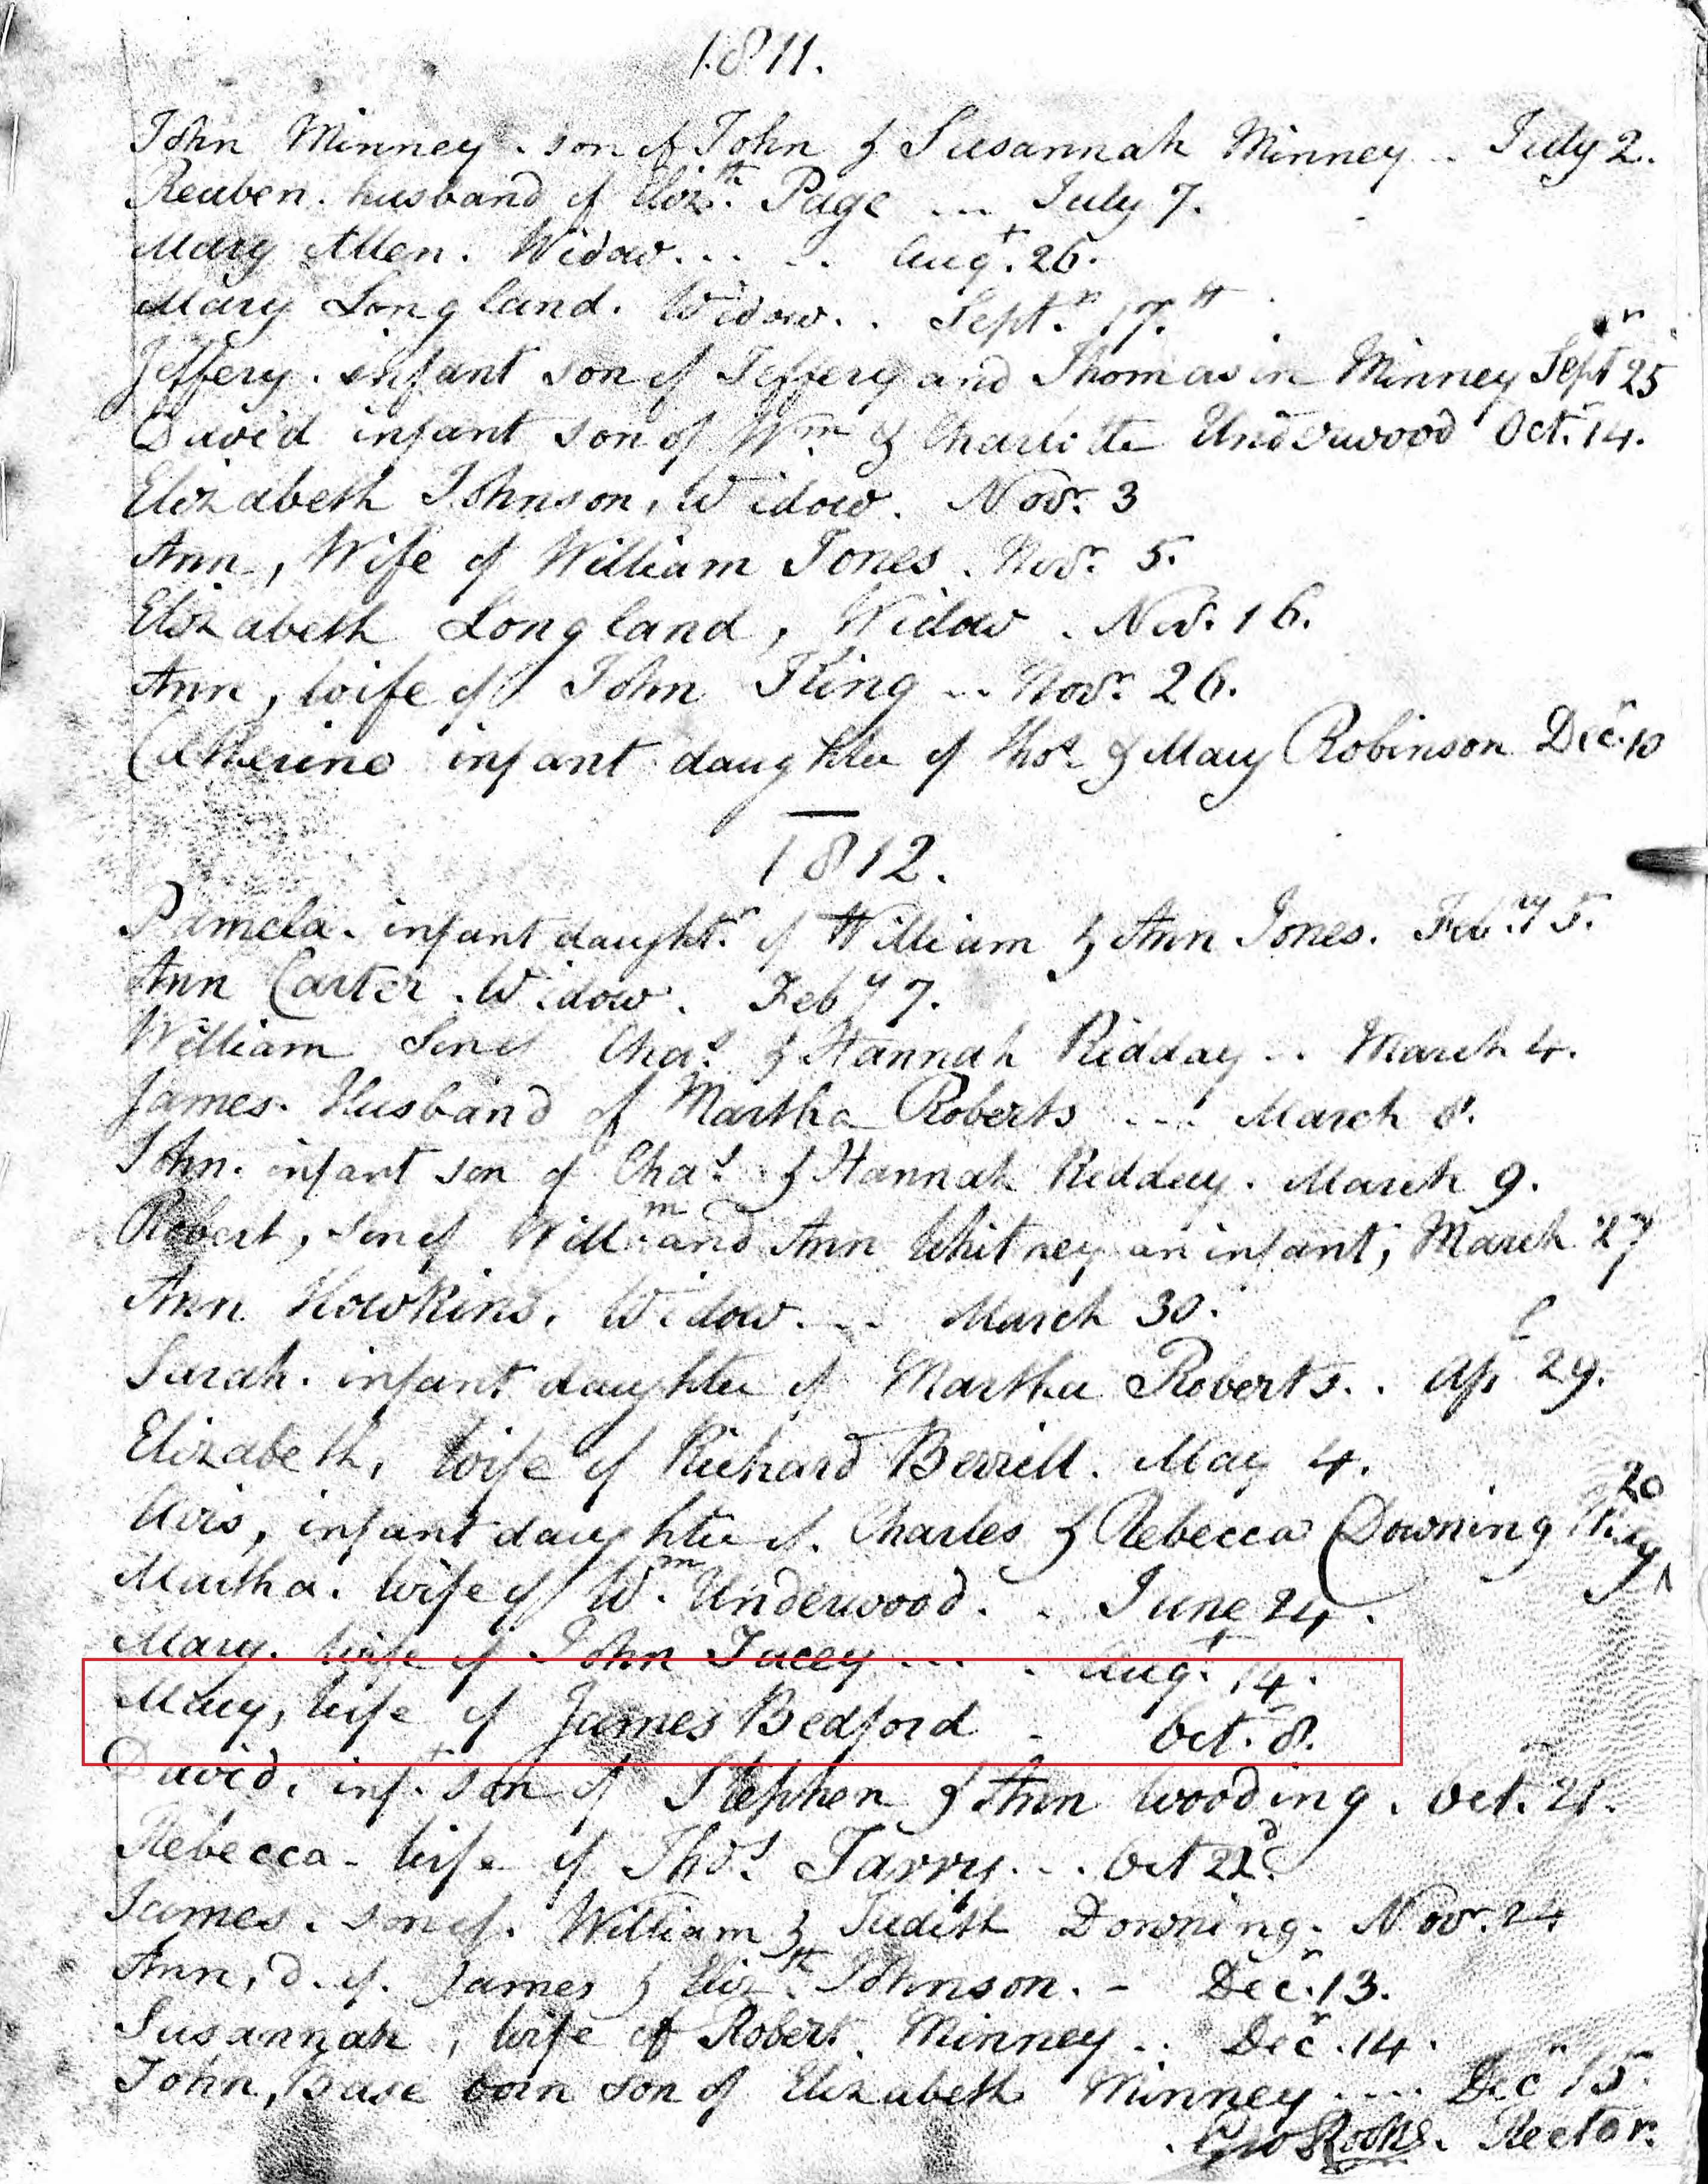 1811.
John Minney. son of John & Susannah Minney .. July 2.
Reuben. husband of Eliz.th Page ... July 7.
Mary Allen. Widow. . . . . Augt. 26.
Mary Longland. Widow. . Septr. 17.th
Jeffery. infant son of Jeffery and Thomasin Minney Septr 25
David infant son of Wm & Charlotte Underwood Octr. 14.
Elizabeth Johnson, Widow. Novr. 3
Ann, Wife of William Jones. Novr. 5.
Elizabeth Longland, Widow. Nov. 16.
Ann, wife of John King .. Novr. 26.
Catherine infant daughter of Thos. & Mary Robinson Decr. 10
1812.
Pamela. infant daughtr. of William & Ann Jones. Feb.ry 5.
Ann Carter. Widow. Feby 7.
William Son of Chas. & Hannah Ridday .. March 4.
James. Husband of Martha Roberts ... March 8.
John. infant son of Chas. & Hannah Ridday. March 9.
Robert, son of Willm. and Ann Whitney an infant, March 27
Ann Howkins. Widow. .. March 30.
Sarah. infant daughter of Martha Roberts. . Apl 29.
Elizabeth, wife of Richard Berrill. May 4.
Avis, infant daughter of. Charles & Rebecca Downing May 20
Martha. wife of Wm. Underwood. . June 24.
Mary. wife of John Tucey ... . Augt. 14.
Mary, wife of James Bedford - Oct. 8.
David, inft. son of Stephen & Ann Wooding. Oct. 21.
Rebecca - wife of Thos. Tarry. .. Oct 22d
James. son of. William & Judith Downing. Novr. 24
Ann, d. of. James & Eliz.th Johnson. - Decr. 13.
Susannah, wife of Robert Minney .. Decr. 14.
John, Base born son of Elizabeth Minney .... Decr 15.
Geo Rooke. Rector.